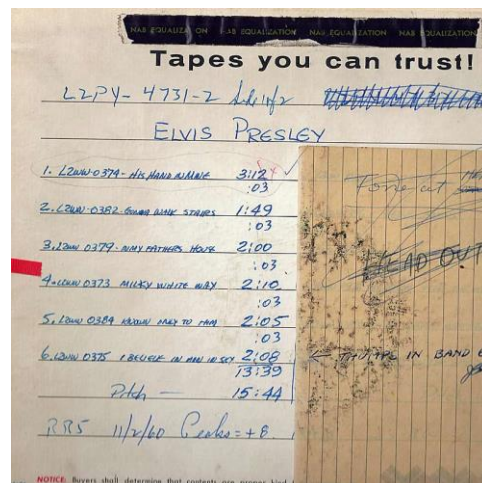 NAB EQUALIZATION NAB EQUALIZATION NAB EQUALIZATION NAB EQUALIZATION
Tapes you can trust!
L2PY-4731-2 Side 1/2
ELVIS PRESLEY
1. L2WW-0374-HIS HAND IN MINE 3:12
:03
2. L2WW-0382-GONNA WALK STAIRS 1:49
:03
3. L2WW 0379-IN MY FATHERS HOUSE 2:00
:03
4. L2WW 0373 MILKY WHITE WAY 2:10
:03
5. L2WW 0384 KNOWN ONLY TO HIM 2:05
:03
6. L2WW 0375 I BELIEVE IN MAN IN SKY 2:08
13:39
Pitch — 15:44
RR5 11/2/60 Peaks = +8
Tone at
HEAD OUT
← TAPE IN BAND
NOTICE: Buyers shall determine that contents are proper kind